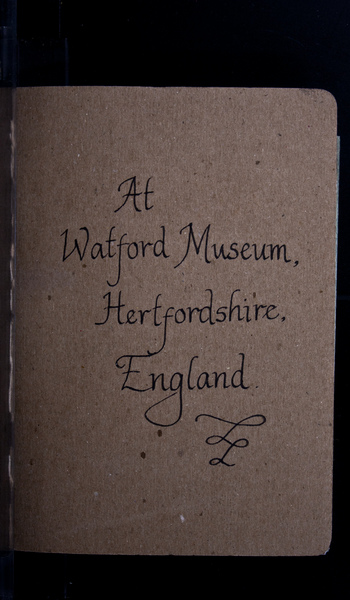 At
Watford Museum,
Hertfordshire,
England